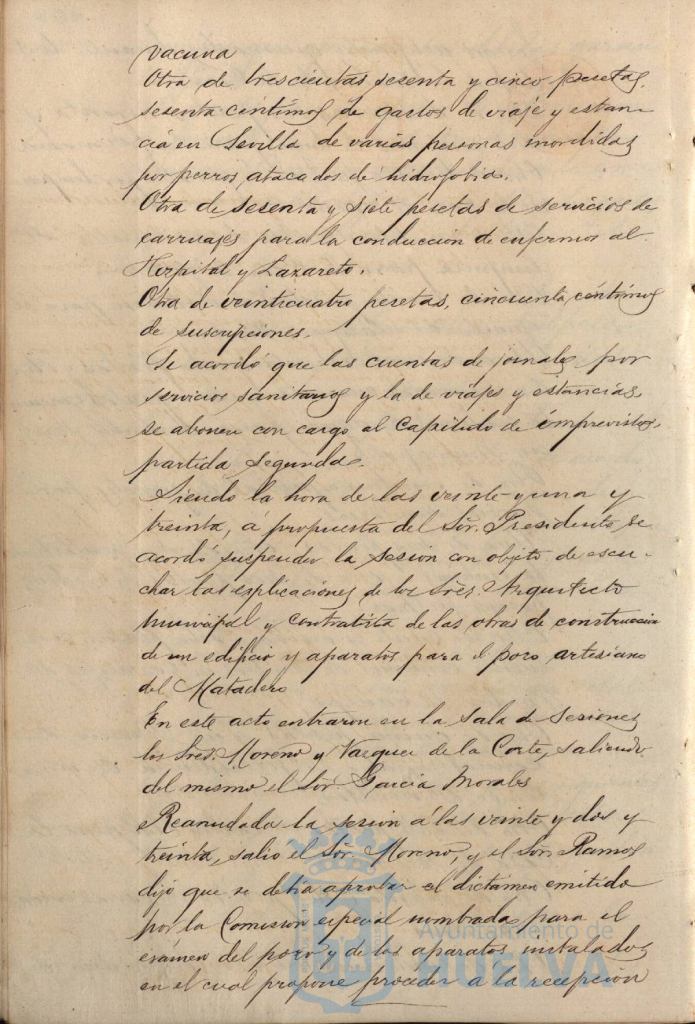 vacuna
Otra de trescientas sesenta y cinco pesetas,
sesenta centimos de gastos de viaje y estan-
cia en Sevilla de varias personas mordidas
por perros atacados de hidrofobia.
Otra de sesenta y siete pesetas de servicios de
carruajes para la conducción de enfermos al
Hospital y Lazareto.
Otra de veinticuatro pesetas, cincuenta céntimos
de suscripciones.
Se acordó que las cuentas de jornales por
servicios sanitarios y la de viajes y estancias,
se abonen con cargo al Capitulo de imprevistos,
partida segunda.
Siendo la hora de las veinte y una y
treinta, á propuesta del Sor. Presidente se
acordó suspender la sesion con objeto de escu-
char las esplicaciones de los Sres. Arquitecto
municipal y contratista de las obras de construccion
de un edificio y aparatos para el pozo artesiano
del Matadero
En este acto entraron en la sala de Sesiones
los Sres. Moreno y Vazquez de la Corte, saliendo
del mismo el Sor Garcia Morales
Reanudada la sesion á las veinte y dos y
treinta, salio el Sor. Moreno, y el Sor. Ramos
dijo que se debia aprobar el dictamen emitido
por la Comision especial nombrada para el
exámen del pozo y de los aparatos instalados
en el cual propone proceder a la recepcion
Ayuntamiento de
HUELVA